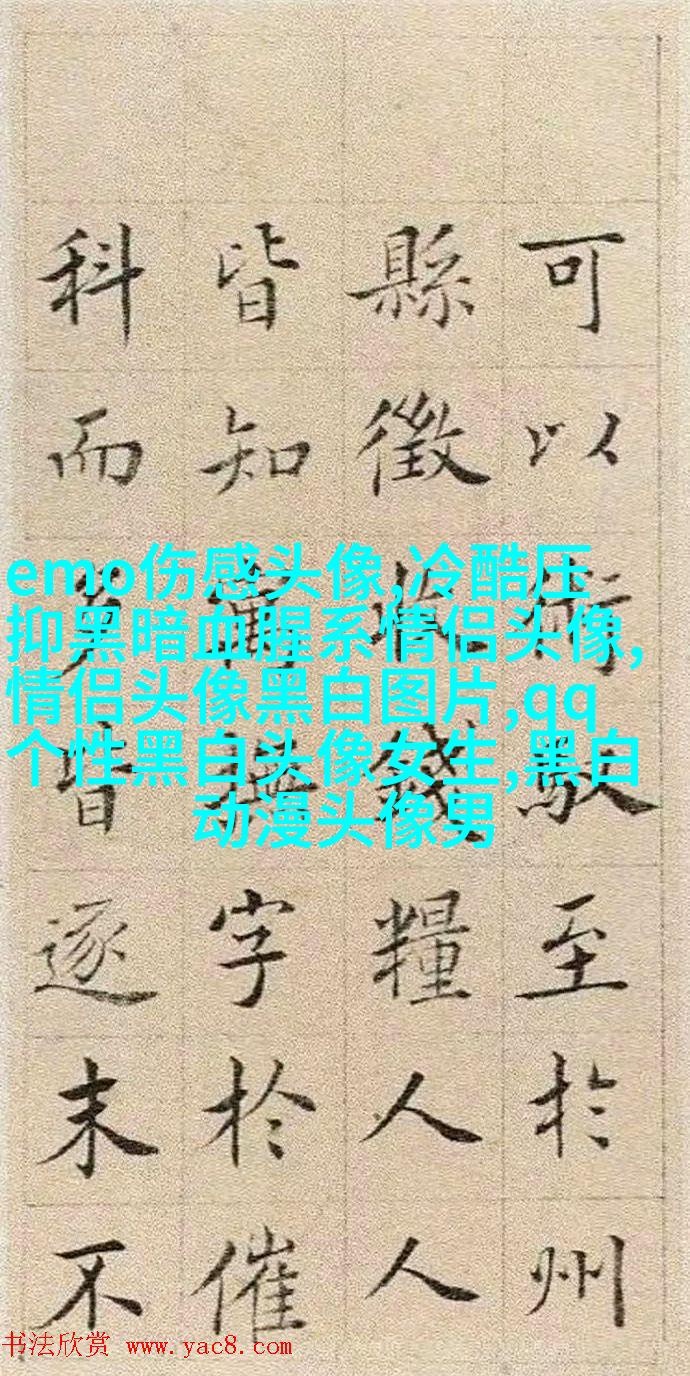 可以術馭至於州
縣徵收錢糧人人
皆知撫字於催
科而皆逐末不
emo伤感头像,冷酷压
抑黑暗血腥系情侣头像,
情侣头像黑白图片,qq
个性黑白头像女生,黑白
动漫头像男
书法欣赏 www.yac8.com